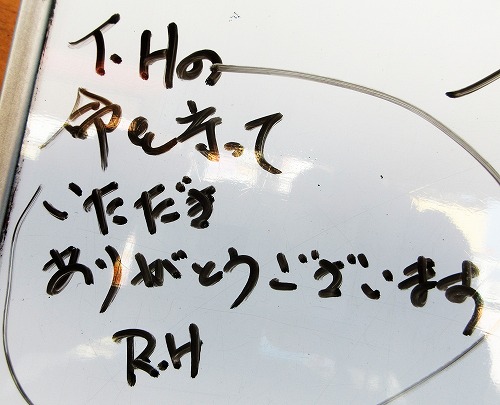 T.Hの
命を守って
いただき
ありがとうございます
R.H